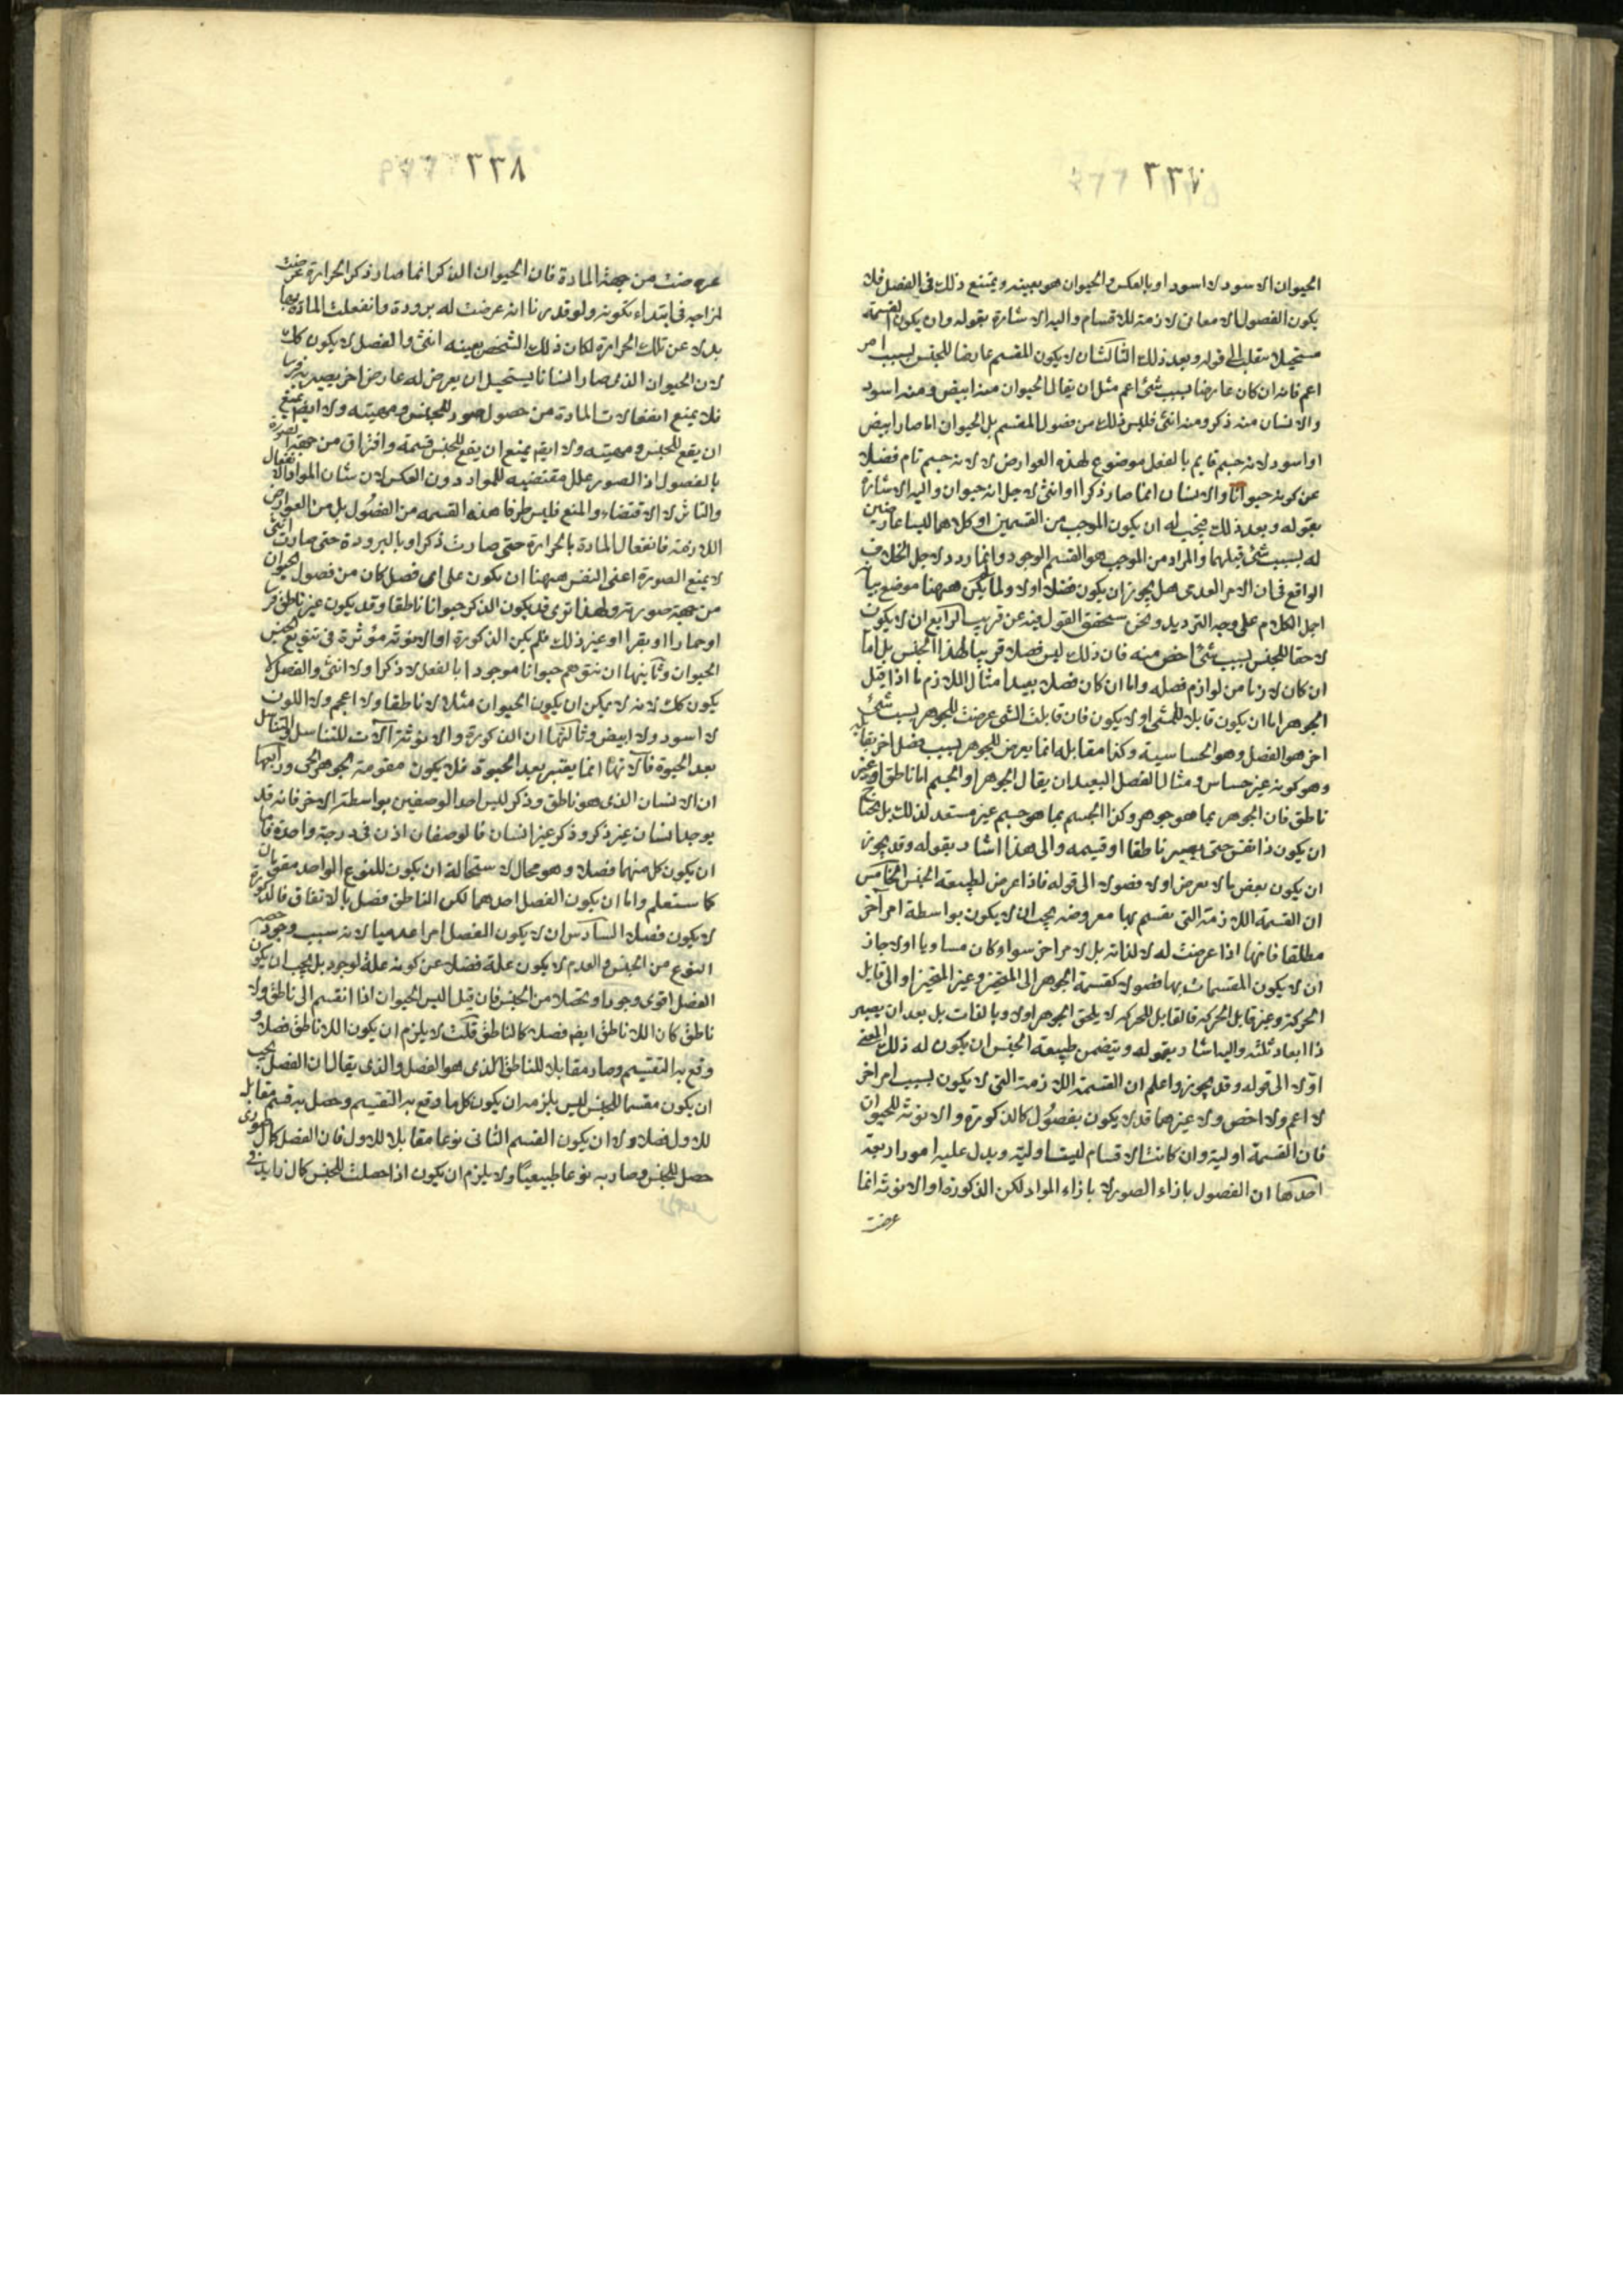 ٣٣٧
الحيوان الاسود لا اسود او بالعكس والحيوان هو بعينه ويمتنع ذلك فى الفصل فلا
يكون الفصول الا معانى لازمة للاقسام واليه الاشارة بقوله وان يكون القسمة
مستحيلا ينقلب الى قوله وبعد ذلك الثالث ان لا يكون المقسم عارضا للجنس بسبب امر
اعم فانه ان كان عارضا بسبب شئ اعم مثل ان يقال الحيوان منه ابيض ومنه اسود
والانسان منه ذكر ومنه انثى فليس ذلك من فصول المقسم بل الحيوان انما صار ابيض
او اسود لانه جسم قايم بالفعل موضوع لهذه العوارض لا لانه جسم تام فضلا
عن كونه حيوانا والانسان انما صار ذكرا او انثى لاجل انه حيوان واليه الاشارة
بقوله وبعد ذلك فيجب له ان يكون الموجب من القسمين او كلاهما ليسا عارضين
له بسبب شئ قبلهما والمراد من الموجب هو القسم الوجودى وانما ردد لاجل الخلاف
الواقع فى ان الامر العدمى هل يجوز ان يكون فصلا اولا ولما لم يكن ههنا موضع بيانه
اجمل الكلام على وجه الترديد ونحن سنحقق القول فيه عن قريب الرابع ان لا يكون
لاحقا للجنس بسبب شئ اخص منه فان ذلك ليس فصلا قريبا لهذا الجنس بل اما
ان كان لازما من لوازم فصله واما ان كان فصلا بعيدا مثال اللازم ما اذا قيل
الجوهر اما ان يكون قابلا للمشى او لا يكون فان قابلية المشى عرضت للجوهر بسبب شئ
اخر هو الفصل وهو الحساسية وكذا مقابله انما يعرض للجوهر بسبب فصل اخر يقابله
وهو كونه غير حساس ومثال الفصل البعيد ان يقال الجوهر او الجسم اما ناطق او غير
ناطق فان الجوهر بما هو جوهر وكذا الجسم بما هو جسم غير مستعد لذلك بل يحتاج
ان يكون ذا نفس حتى يصير ناطقا او قسيمه والى هذا اشار بقوله وقد يجوز
ان يكون بعض ما لا يعرض اولا فصولا الى قوله فاذا عرض لطبيعة الجنس الخامس
ان القسمة اللازمة التى يقسم بها معروضه يجب ان لا يكون بواسطة امر آخر
مطلقا فانها اذا عرضت له لا لذاته بل لامر اخر سواء كان مساويا او لا جاز
ان لا يكون المقسمات بها فصولا كقسمة الجوهر الى المتحيز وغير المتحيز او الى قابل
الحركة وغير قابل الحركة فالقابل للحركة لا يلحق الجوهر اولا وبالذات بل بعد ان يصير
ذا ابعاد ثلثة واليه اشار بقوله ويتضمن طبيعة الجنس ان يكون له ذلك المعنى
اولا الى قوله وقد يجوز واعلم ان القسمة اللازمة التى لا يكون بسبب امر اخر
لا اعم ولا اخص ولا غيرهما قد لا يكون بفصول كالذكورة والانوثة للحيوان
فان القسمة اولية وان كانت الاقسام ليست اولية ويدل عليه امور اربعة
احدها ان الفصول بازاء الصور لا بازاء المواد لكن الذكورة او الانوثة انما
عرضت
٣٣٨
عرضت من جهة المادة فان الحيوان الذكر انما صار ذكرا لحرارة عرضت
لمزاجه فى ابتداء تكونه ولو قدرنا انه عرضت له برودة وانفعلت المادة بها
بدلا عن تلك الحرارة لكان ذلك الشخص بعينه انثى والفصل لا يكون كك
لان الحيوان الذى صار انسانا يستحيل ان يعرض له عارض اخر يصير به فرسا
فلا يمنع انفعالات المادة من حصول صور للجنس ومهيته ولا ايض يمنع
ان يقع للجنس ومهيته ولا ايض يمنع ان يقع للجنس قسمة وافتراق من جهة الصورة
بالفصول اذ الصور علل مقتضيه للمواد دون العكس لان شان المواد الانفعال
والتاثر لا الاقتضاء والمنع فليس طرفا هذه القسمه من الفصول بل من العوارض
اللازمة فانفعال المادة بالحرارة حتى صارت ذكرا او بالبرودة حتى صارت انثى
لا يمنع الصورة اعنى النفس ههنا ان يكون على اى فصل كان من فصول الحيوان
من جهة صورته ولهذا ترى قد يكون الذكر حيوانا ناطقا وقد يكون غير ناطق فرسا
او حمارا او بقرا او غير ذلك فلم يكن الذكورة او الانوثة مؤثرة فى تنويع الجنس
الحيوان وثانيها ان نتوهم حيوانا موجودا بالفعل لا ذكرا ولا انثى والفصل لا
يكون كك لانه لا يمكن ان يكون الحيوان مثلا لا ناطقا ولا اعجم ولا اللون
لا اسود ولا ابيض وثالثها ان الذكورة والانوثة آلات للتناسل والتناسل
بعد الحيوة فآلاتها انما يعتبر بعد الحيوة فلا يكون مقومة للجوهر الحى ورابعها
ان الانسان الذى هو ناطق وذكر ليس احد الوصفين بواسطة الاخر فانه قد
يوجد انسان غير ذكر وذكر غير انسان فالوصفان اذن فى درجة واحدة فاما
ان يكون كل منهما فصلا وهو محال لاستحالة ان يكون للنوع الواحد مقومان
كما ستعلم واما ان يكون الفصل احدهما لكن الناطق فصل بالاتفاق فالذكورة
لا يكون فصلا السادس ان لا يكون الفصل امرا عدميا لانه سبب وجود حصة
النوع من الجنس والعدم لا يكون علة فضلا عن كونه علة لوجود بل يجب ان يكون
الفصل اقوى وجودا وتحصلا من الجنس فان قيل اليس الحيوان اذا انقسم الى ناطق ولا
ناطق كان اللا ناطق ايض فصلا كالناطق قلت لا يلزم ان يكون اللا ناطق فصلا و
وقع به التقسيم وصار مقابلا للناطق الذى هو الفصل والذى يقال ان الفصل يجب
ان يكون مقسما للجنس ليس يلزمه ان يكون كل ما وقع به التقسيم وحصل به قسم مقابل
للاول فصلا ولا ان يكون القسم الثانى نوعا مقابلا للاول فان الفصل كمال صورى
حصل للجنس وصار به نوعا طبيعيا ولا يلزم ان يكون اذا حصلت للجنس كمال زايد فى